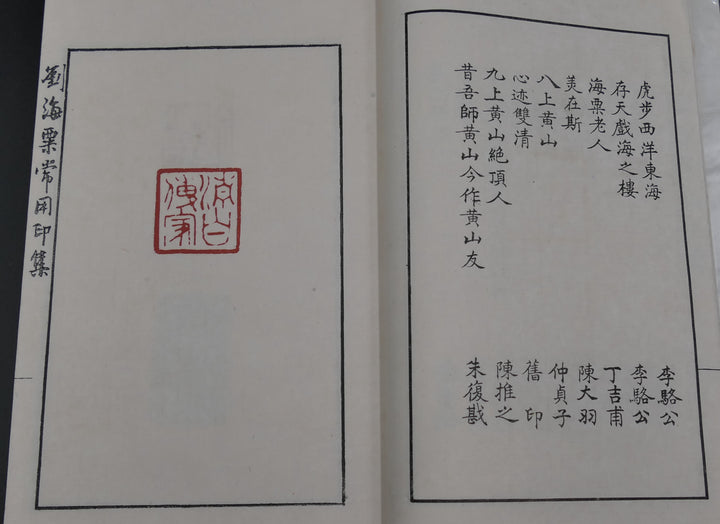 虎步西洋東海
李駱公
存天戲海之樓
李駱公
海粟老人
丁吉甫
羙在斯
陳大羽
八上黄山
仲貞子
心迹雙清
舊印
九上黄山絶頂人
陳推之
昔吾師黄山今作黄山友
朱復戡
清白
傳家
劉海粟常用印集